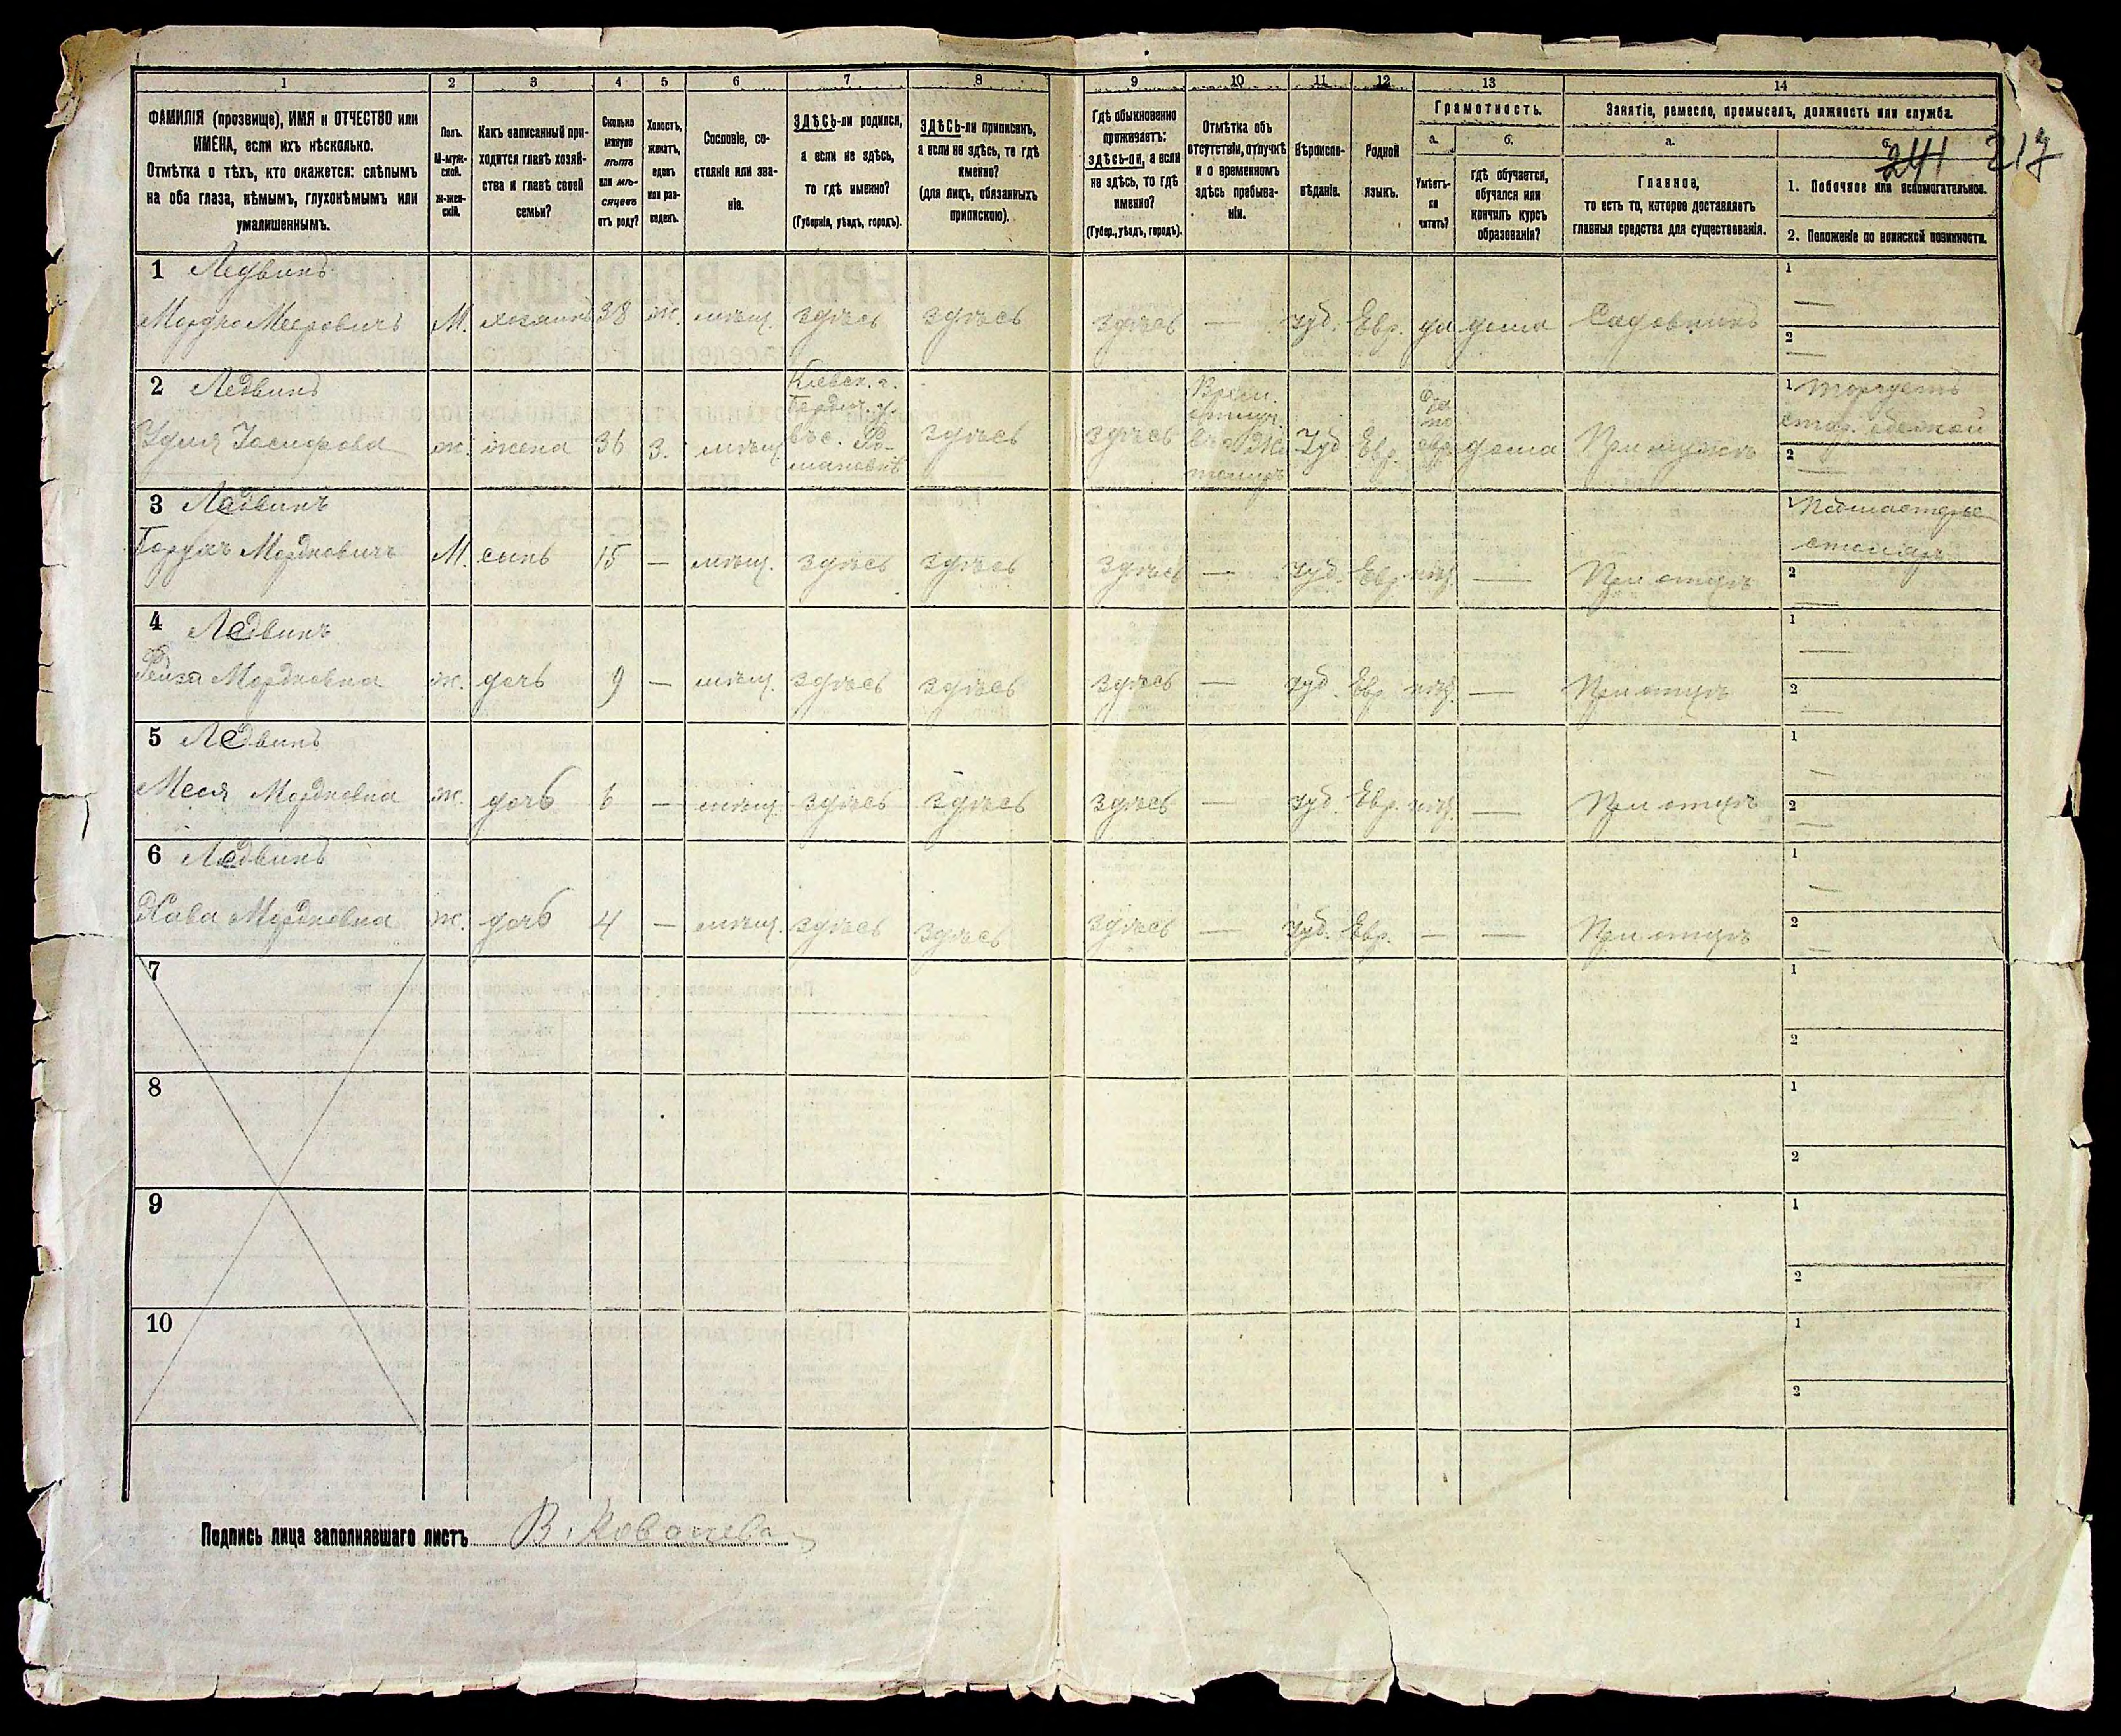 1
2
3
4
5
6
7
8
9
10
11
12
13
14
ФАМИЛІЯ (прозвище), ИМЯ и ОТЧЕСТВО или
ИМЕНА, если ихъ нѣсколько.
Отмѣтка о тѣхъ, кто окажется: слѣпымъ
на оба глаза, нѣмымъ, глухонѣмымъ или
умалишеннымъ.
Полъ.
М-муж-
ской.
Ж-жен-
скій.
Какъ записанный при-
ходится главѣ хозяй-
ства и главѣ своей
семьи?
Сколько
минуло
лѣтъ
или мѣ-
сяцевъ
отъ роду?
Холостъ,
женатъ,
вдовъ
или раз-
веденъ.
Сословіе, со-
стояніе или зва-
ніе.
ЗДѢСЬ-ли родился,
а если не здѣсь,
то гдѣ именно?
(Губернія, уѣздъ, городъ).
ЗДѢСЬ-ли приписанъ,
а если не здѣсь, то гдѣ
именно?
(для лицъ, обязанныхъ
припискою).
Гдѣ обыкновенно
проживаетъ:
здѣсь-ли, а если
не здѣсь, то гдѣ
именно?
(Губер., уѣздъ, городъ).
Отмѣтка объ
отсутствіи, отлучкѣ
и о временномъ
здѣсь пребыва-
ніи.
Вѣроиспо-
вѣданіе.
Родной
языкъ.
Грамотность.
а.
Умѣетъ-
ли
читать?
б.
гдѣ обучается,
обучался или
кончилъ курсъ
образованія?
Занятіе, ремесло, промыселъ, должность или служба.
а.
Главное,
то есть то, которое доставляетъ
главныя средства для существованія.
б.
241 217
1. Побочное или вспомогательное.
2. Положеніе по воинской повинности.
1 Ледвинъ
Мордко Мееровичъ М. хозяинъ 38 ж. мѣщ. здѣсь здѣсь здѣсь — Іуд. Евр. да дома Садовникъ
1 —
2 —
2 Ледвинъ
Іосифова ж. жена 36 З. мѣщ.
Кіевск. г.
Бердич. у.
въ с. Ро-
мановкѣ
здѣсь здѣсь
Врем.
отлуч.
въ г. Жи
томиръ
Іуд. Евр.
да
по
евр.
дома При мужѣ
1 Торгуетъ
стар. одежой
2 —
3 Ледвинъ
Борухъ Мордковичъ М. сынъ 15 — мѣщ. здѣсь здѣсь здѣсь — Іуд. Евр. нѣт. — При отцѣ
1 Подмастерье
столяръ
2 —
4 Ледвинъ
Рейза Мордковна ж. дочь 9 — мѣщ. здѣсь здѣсь здѣсь — Іуд. Евр. нѣт. — При отцѣ
1 —
2 —
5 Ледвинъ
Меся Мордковна ж. дочь 6 — мѣщ. здѣсь здѣсь здѣсь — Іуд. Евр. нѣт. — При отцѣ
1 —
2 —
6 Ледвинъ
Хава Мордковна ж. дочь 4 — мѣщ. здѣсь здѣсь здѣсь — Іуд. Евр. — — При отцѣ
1 —
2 —
7
1
2
8
1
2
9
1
2
10
1
2
Подпись лица заполнявшаго листъ В. Ковалева